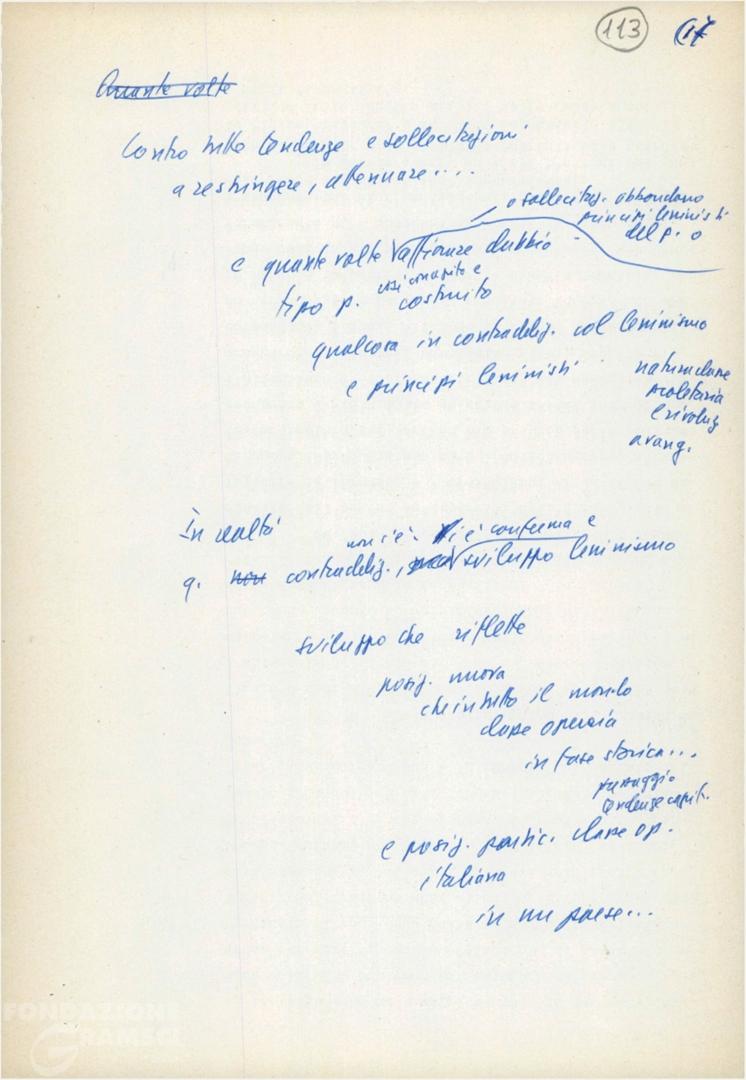 113 17
Quante volte
Contro tutte tendenze e sollecitazioni
a restringere, attenuare....
e sollecitaz. abbandono
principi leninisti
del p. o
e quante volte affiorare dubbio -
tipo p. così concepito e
costruito
qualcosa in contraddiz. col leninismo
e principi leninisti
natura classe
proletaria
e rivoluz
avang.
In realtà
non c'è. Vi è conferma e
q. non contraddiz., ma sviluppo leninismo
sviluppo che riflette
posiz. nuova
che in tutto il mondo
classe operaia
in fase storica...
passaggio
tendenze capit.
e posiz. partic. classe op.
italiana
in un paese...
FONDAZIONE
GRAMSCI